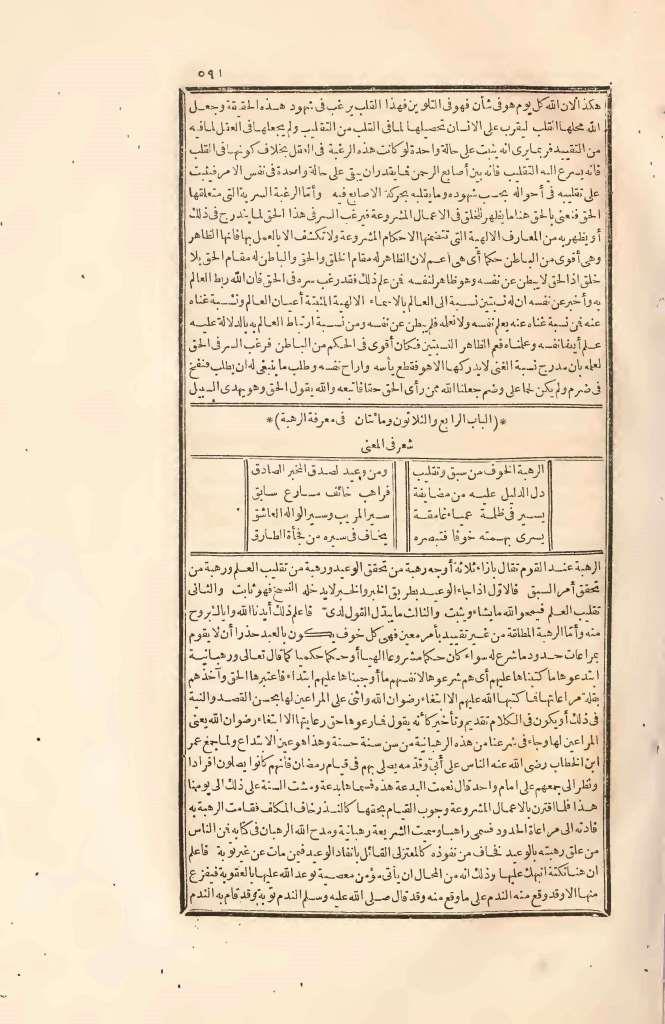 ٥٩١
هكذا لان الله كل يوم هو فى شأن فهو فى التلوين فهذا القلب يرغب فى شهود هذه الحقيقة وجعل
الله محلها القلب ليقرب على الانسان تحصيلها لما فى القلب من التقليب ولم يجعلها فى العقل لما فيه
من التقييد فربما يرى انه يثبت على حالة واحدة لو كانت هذه الرغبة فى العقل بخلاف كونها فى القلب
فانه يسرع اليه التقليب فانه بين أصابع الرحمن فما يقدر ان يبقى على حالة واحدة فى نفس الامر فيثبت
على تقليبه فى أحواله بحسب شهوده وما يقلبه بحركة الاصابع فيه وأما الرغبة السرية التى متعلقها
الحق فنعنى بالحق هنا ما يظهر للخلق فى الاعمال المشروعة فيرغب السر فى هذا الحق لما يندرج فى ذلك
أو يظهر به من المعارف الالهية التى تتضمنها الاحكام المشروعة ولا تكشف الا بالعمل بها فانها الظاهر
وهى أقوى من الباطن حكما أى هى أعم لان الظاهر له مقام الخلق والحق والباطن له مقام الحق بلا
خلق اذ الحق لا يبطن عن نفسه وهو ظاهر لنفسه فمن علم ذلك فقد رغب سره فى الحق فان الله ربط العالم
به وأخبر عن نفسه ان له نسبتين نسبة الى العالم بالاسماء الالهية المثبتة أعيان العالم ونسبة غناه
عنه فمن نسبة غناه عنه يعلم نفسه ولا نعلمه فلم يبطن عن نفسه ومن نسبة ارتباط العالم به بالدلالة عليه
علم أيضا نفسه وعلمناه فعم الظاهر النسبتين فكان أقوى فى الحكم من الباطن فرغب السر فى الحق
لعلمه بان مدرج نسبة الغنى لا يدركها الا هو فقطع يأسه وراح نفسه وطلب ما ينبغى له ان يطلب فنفخ
فى ضرم ولم يكن لحما على وضم جعلنا الله ممن رأى الحق حقا فاتبعه والله يقول الحق وهو يهدى السبيل
*(الباب الرابع والثلاثون ومائتان فى معرفة الرهبة)*
شعر فى المعنى
الرهبة الخوف من سبق وتقليب ومن وعيد لصدق المخبر الصادق
دل الدليل عليه من مضايفة فراهب خائف مسارع سابق
يسير فى ظلمة عمياء غامقة سير المريب وسير الواله العاشق
يسرى بهمته خوفا فتبصره يخاف فى سيره من فجأة الطارق
الرهبة عند القوم تقال بازاء ثلاثة أوجه رهبة من تحقق الوعيد ورهبة من تقليب العلم ورهبة من
تحقق أمر السبق فالاول اذا جاء الوعيد بطريق الخبر والخبر لا يدخله النسخ فهو ثابت والثانى
تقليب العلم فيمحو الله ما يشاء ويثبت والثالث ما يبدل القول لدى فاعلم ذلك أيدنا الله واياك بروح
منه وأما الرهبة المطلقة من غير تقييد بأمر معين فهى كل خوف يكون بالعبد حذرا أن لا يقوم
بمراعات حدود ما شرع له سواء كان حكما مشروعا الهيا أو حكما حكميا كما قال تعالى ورهبانية
ابتدعوها ما كتبناها عليهم أى هم شرعوها لانفسهم ما أوجبناها عليهم ابتداء فاعتبرها الحق وآخذهم
بقلة مراعاتها فما كتبها الله عليهم الا ابتغاء رضوان الله واثنى على المراعين لها بحسن القصد والنية
فى ذلك أو يكون فى الكلام تقديم وتأخير كأنه يقول فما رعوها حق رعايتها الا ابتغاء رضوان الله يعنى
المراعين لها وجاء فى شرعنا من هذه الرهبانية من سن سنة حسنة وهذا هو عين الابتداع ولما جمع عمر
ابن الخطاب رضى الله عنه الناس على أبى وقدمه يصلى بهم فى قيام رمضان فانهم كانوا يصلون أفرادا
ونظر الى جمعهم على امام واحد قال نعمت البدعة هذه فسماها بدعة ومشت السنة على ذلك الى يومنا
هذا فلما اقترن بالاعمال المشروعة وجوب القيام بحقها كالنذر خاف المكلف فقامت الرهبة به
فادته الى مراعاة الحدود فسمى راهبا وسميت الشريعة رهبانية ومدح الله الرهبان فى كتابه فمن الناس
من علق رهبته بالوعيد فخاف من نفوذه كالمعتزلى القائل بانفاذ الوعيد فيمن مات عن غير توبة فاعلم
ان هنا نكتة انبهك عليها وذلك انه من المحال ان يأتى مؤمن معصية توعد الله عليها بالعقوبة فيفزع
منها الا وقد وقع منه الندم على ما وقع منه وقد قال صلى الله عليه وسلم الندم توبة وقد قام به الندم